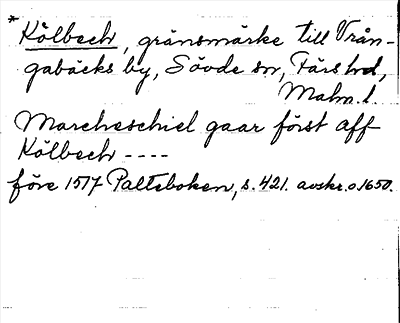 * Kölbech, gränsmärke till Vrån-
gabäcks by, Sövde sn, Färs hd,
Malm. l.
Marcheschiel gaar först aff
Kölbech ----
före 1517 Palteboken, s. 421. avskr. o 1650.